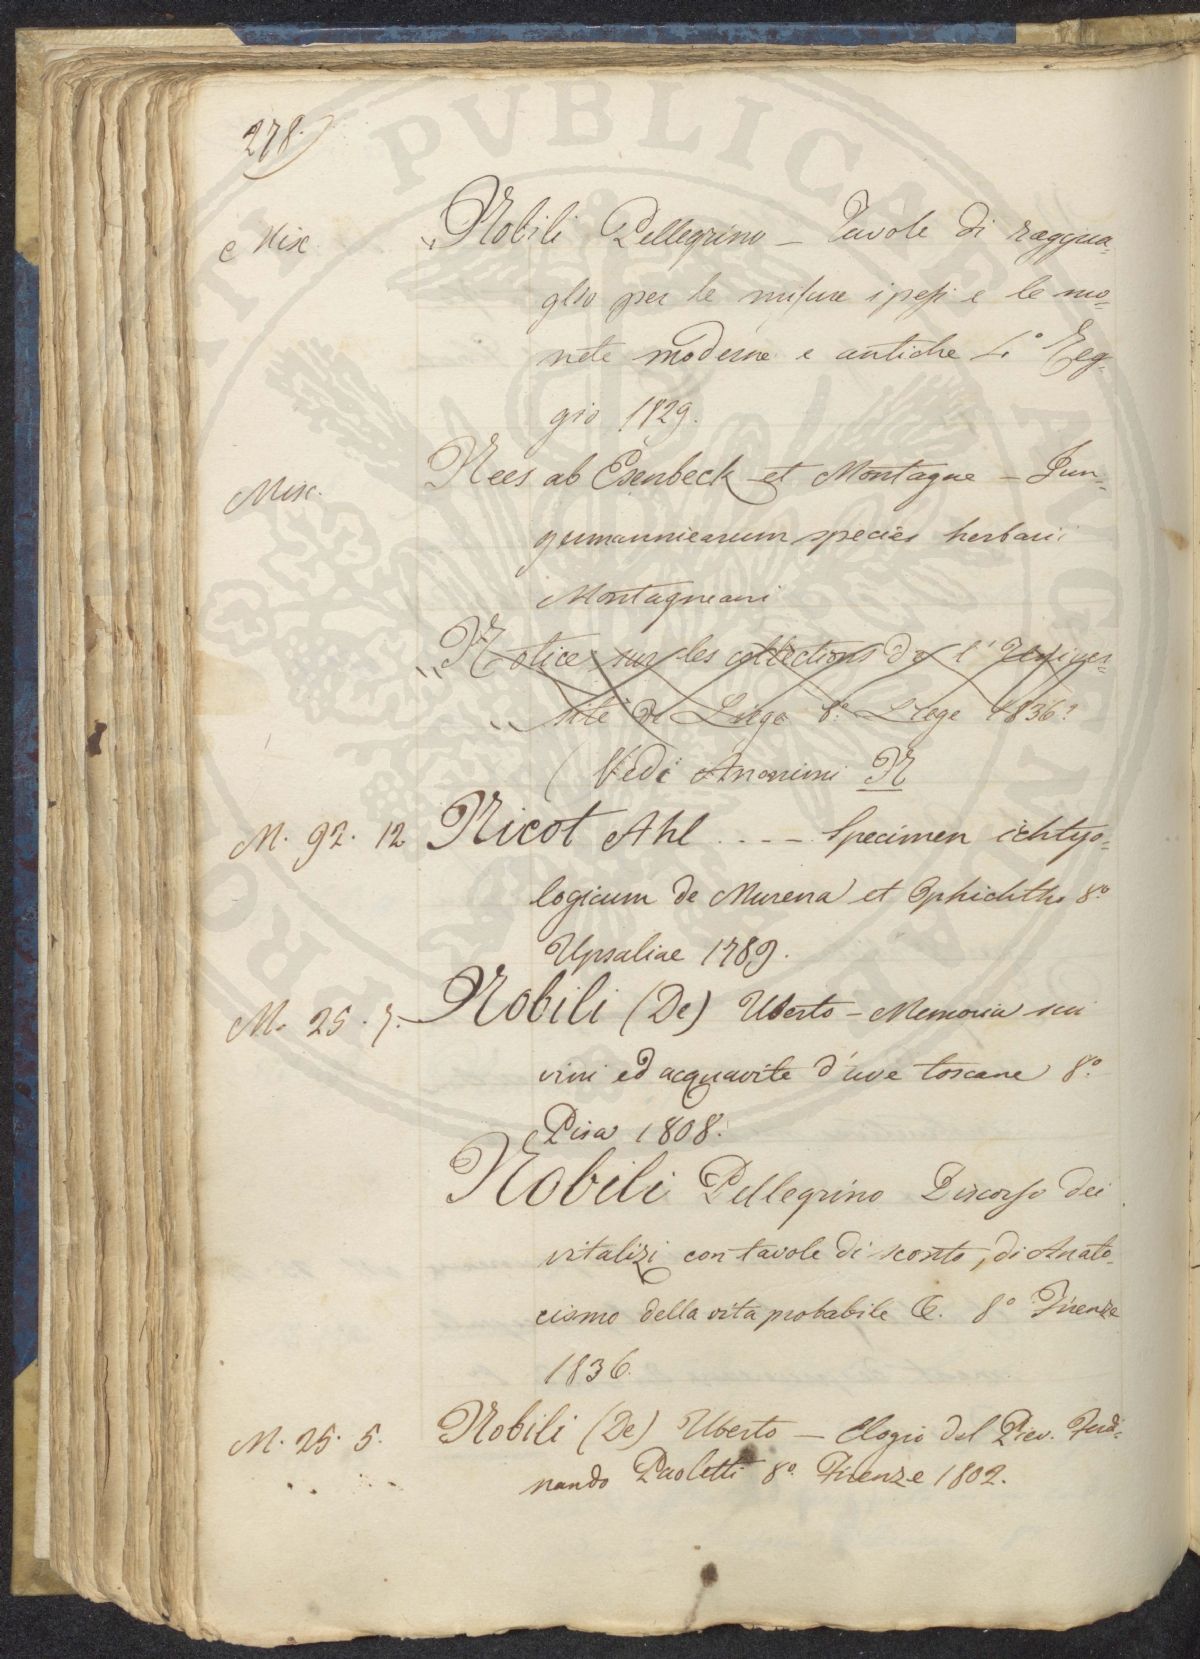 278.
Misc. Nobili Pellegrino – Tavole di raggua-
glio per le misure i pesi e le mo-
nete moderne e antiche 4.° Reg-
gio 1829.
Misc. Nees ab Esenbeck et Montagne – Jun-
germanniearum species herbarii
Montagneani
Notice sur les collections de l'Univer-
sité de Liege 8.° Liege 1836.
(Vedi Anonimi N
M. 92. 12 Nicot Ahl . . – – Specimen ichtyo-
logicum de Murena et Ophichtho 8.°
Upsaliae 1789.
M. 25. 7. Nobili (De) Uberto – Memoria sui
vini ed acquavite d'uve toscane 8.°
Pisa 1808.
Nobili Pellegrino Discorso dei
vitalizi con tavole di sconto, di Anato-
cismo della vita probabile &. 8° Firenze
1836.
M. 25. 5. Nobili (De) Uberto – Elogio del Piev. Ferdi-
nando Paoletti 8.° Firenze 1802.
PVBLICAE